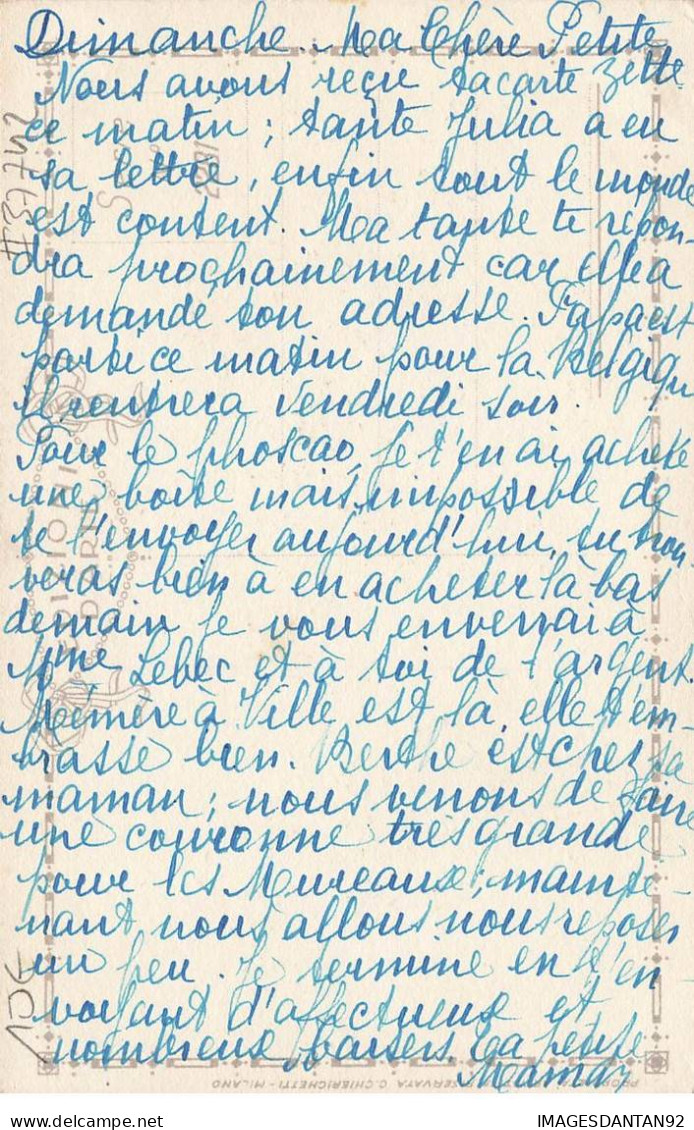 Dimanche. Ma Chère Petite
Zette
Nous avons reçu ta carte
ce matin ; tante Julia a eu
sa lettre, enfin tout le monde
est content. Ma tante te répon-
dra prochainement car elle a
demandé ton adresse. Papa est
parti ce matin pour la Belgique
Il rentrera Vendredi soir.
Pour le phoscao, je t'en ai acheté
une boîte mais impossible de
te l'envoyer aujourd'hui, tu trou-
veras bien à en acheter là bas
demain je vous enverrai à
Mme Lebec et à toi de l'argent.
Mémère à Ville est là, elle t'em-
brasse bien. Berthe est chez sa
maman ; nous venons de faire
une couronne très grande
pour les Mureaux ; mainte-
nant nous allons nous reposer
un peu. Je termine en t'en-
voyant d'affectueux et
nombreux baisers. Ta petite
Maman
EDITIONI
D'ARTE
2281
VDS
PROPRIETA RISERVATA G. CHIERICHETTI - MILANO
IMAGESDANTAN92